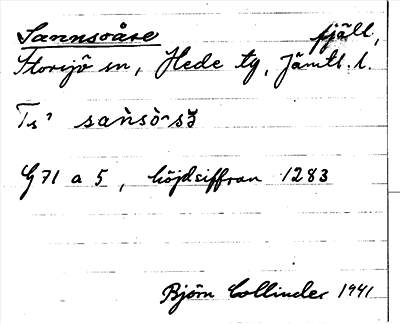 Sannsoåse fjäll,
Storsjö sn, Hede tg, Jämtl. l.
Ts' sànsò`sʒ̆
G 71 a 5, höjdsiffran 1283
Björn Collinder 1941